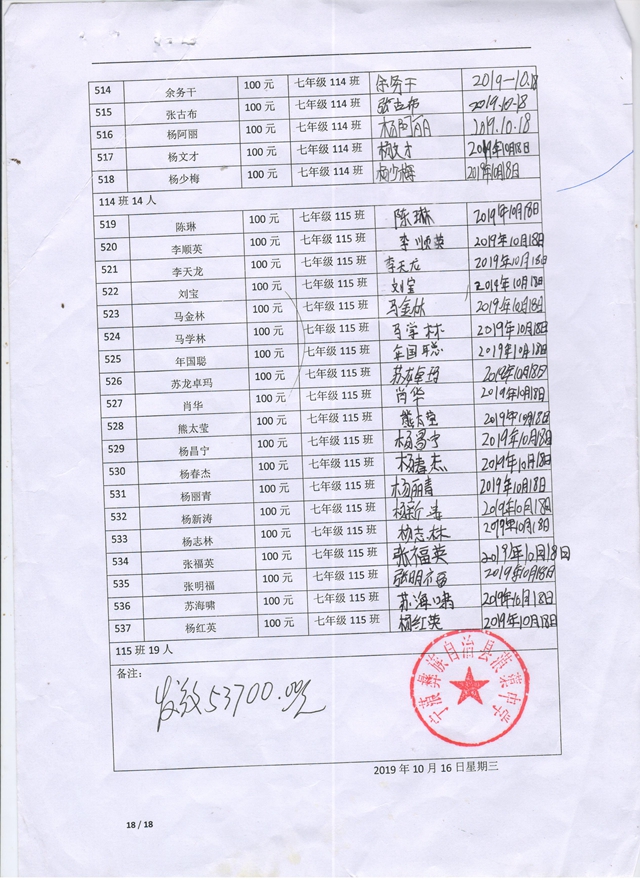 514 余务干 100 元 七年级 114 班 余务干 2019-10.18
515 张古布 100 元 七年级 114 班 张古布 2019.10.18
516 杨阿丽 100 元 七年级 114 班 杨阿丽 2019.10.18
517 杨文才 100 元 七年级 114 班 杨文才 2019年10月18日
518 杨少梅 100 元 七年级 114 班 杨少梅 2019年10月18日
114 班 14 人
519 陈琳 100 元 七年级 115 班 陈琳 2019年10月18日
520 李顺英 100 元 七年级 115 班 李顺英 2019年10月18日
521 李天龙 100 元 七年级 115 班 李天龙 2019年10月18日
522 刘宝 100 元 七年级 115 班 刘宝 2019年10月18日
523 马金林 100 元 七年级 115 班 马金林 2019年10月18日
524 马学林 100 元 七年级 115 班 马学林 2019年10月18日
525 年国聪 100 元 七年级 115 班 年国聪 2019年10月18日
526 苏龙卓玛 100 元 七年级 115 班 苏龙卓玛 2019年10月18日
527 肖华 100 元 七年级 115 班 肖华 2019年10月18日
528 熊太莹 100 元 七年级 115 班 熊太莹 2019年10月18日
529 杨昌宁 100 元 七年级 115 班 杨昌宁 2019年10月18日
530 杨春杰 100 元 七年级 115 班 杨春杰 2019年10月18日
531 杨丽青 100 元 七年级 115 班 杨丽青 2019年10月18日
532 杨新涛 100 元 七年级 115 班 杨新涛 2019年10月18日
533 杨志林 100 元 七年级 115 班 杨志林 2019年10月18日
534 张福英 100 元 七年级 115 班 张福英 2019年10月18日
535 张明福 100 元 七年级 115 班 张明福 2019年10月18日
536 苏海啸 100 元 七年级 115 班 苏海啸 2019年10月18日
537 杨红英 100 元 七年级 115 班 杨红英 2019年10月18日
115 班 19 人
备注：
发放53700.00元
宁蒗彝族自治县浪蕖中学
2019 年 10 月 16 日星期三
18 / 18